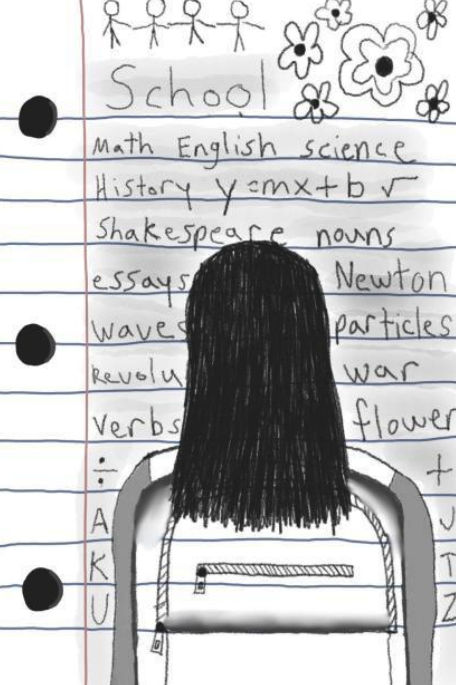 School
Math English science
History y=mx+b √
Shakespeare nouns
essays Newton
waves particles
Revolu war
verbs flower
÷ +
A J
K T
U Z